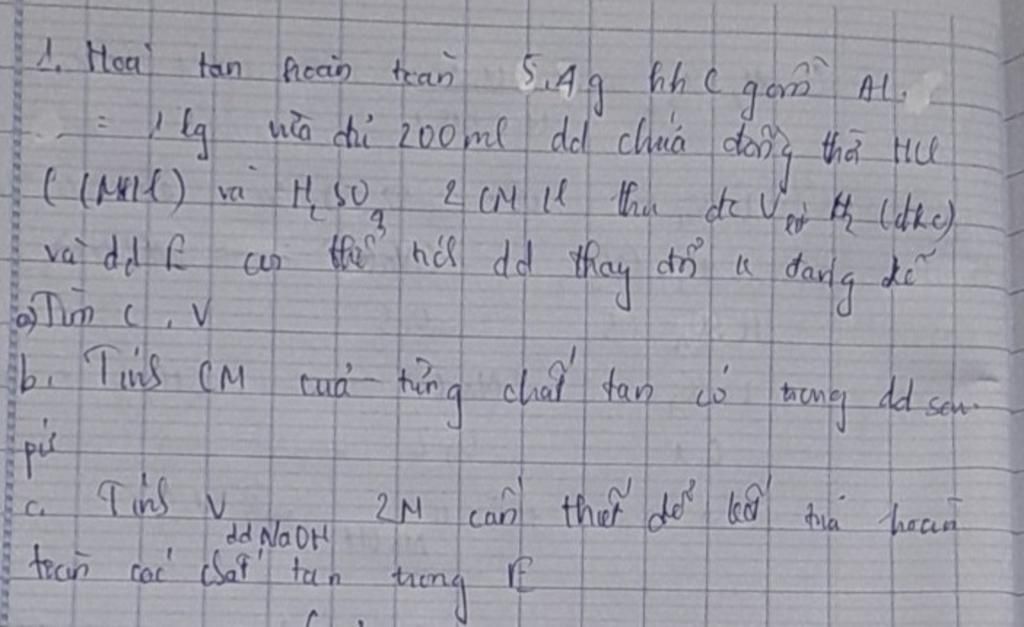 1. Hoà tan hoàn toàn 5,4g hh C gồm Al.
= 1 kg vừa đủ 200ml dd chứa đồng thời HCl
và H2SO 2 CM thu đc V H2 (đkc)
và dd E coi thể tích dd thay đổi đáng kể
a) Tìm C, V
b. Tính CM của từng chất tan có trong dd sau
pứ
c. Tính V dd NaOH 2M cần thiết để kết tủa hoàn
toàn các chất tan trong E